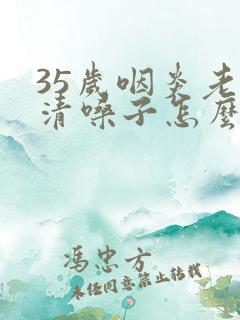 35歲咽炎老
清嗓子怎麼
馮忠方
未經同意禁止轉載